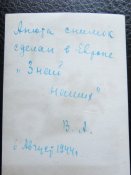 Анюта снимок
сделан в Европе
„Знай
наших"
В. А.
6 Август 1944 г.